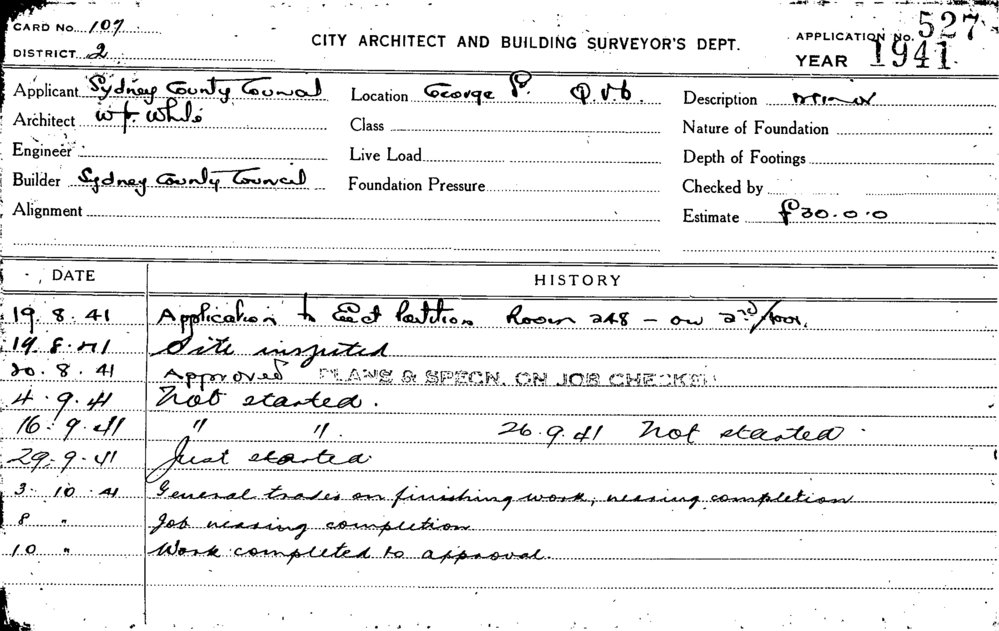 CARD No. 107
DISTRICT 2
CITY ARCHITECT AND BUILDING SURVEYOR'S DEPT.
APPLICATION No. 527
YEAR 1941.
Applicant Sydney County Council
Location George St. Q.V.B.
Description Minor
Architect W. White
Class
Nature of Foundation
Engineer
Live Load
Depth of Footings
Builder Sydney County Council
Foundation Pressure
Checked by
Alignment
Estimate £30.0.0
DATE HISTORY
19. 8. 41 Application to Erect Partition Room 248 - on 2nd floor.
19. 8. 41 Site inspected
20. 8. 41 Approved PLANS & SPECN. ON JOB CHECKED
4. 9. 41 Not started.
16. 9. 41 " ". 26.9.41 Not started.
29. 9. 41 Just started.
3. 10. 41 General trades on finishing work, nearing completion
8 " Job nearing completion
10 " Work completed to approval.